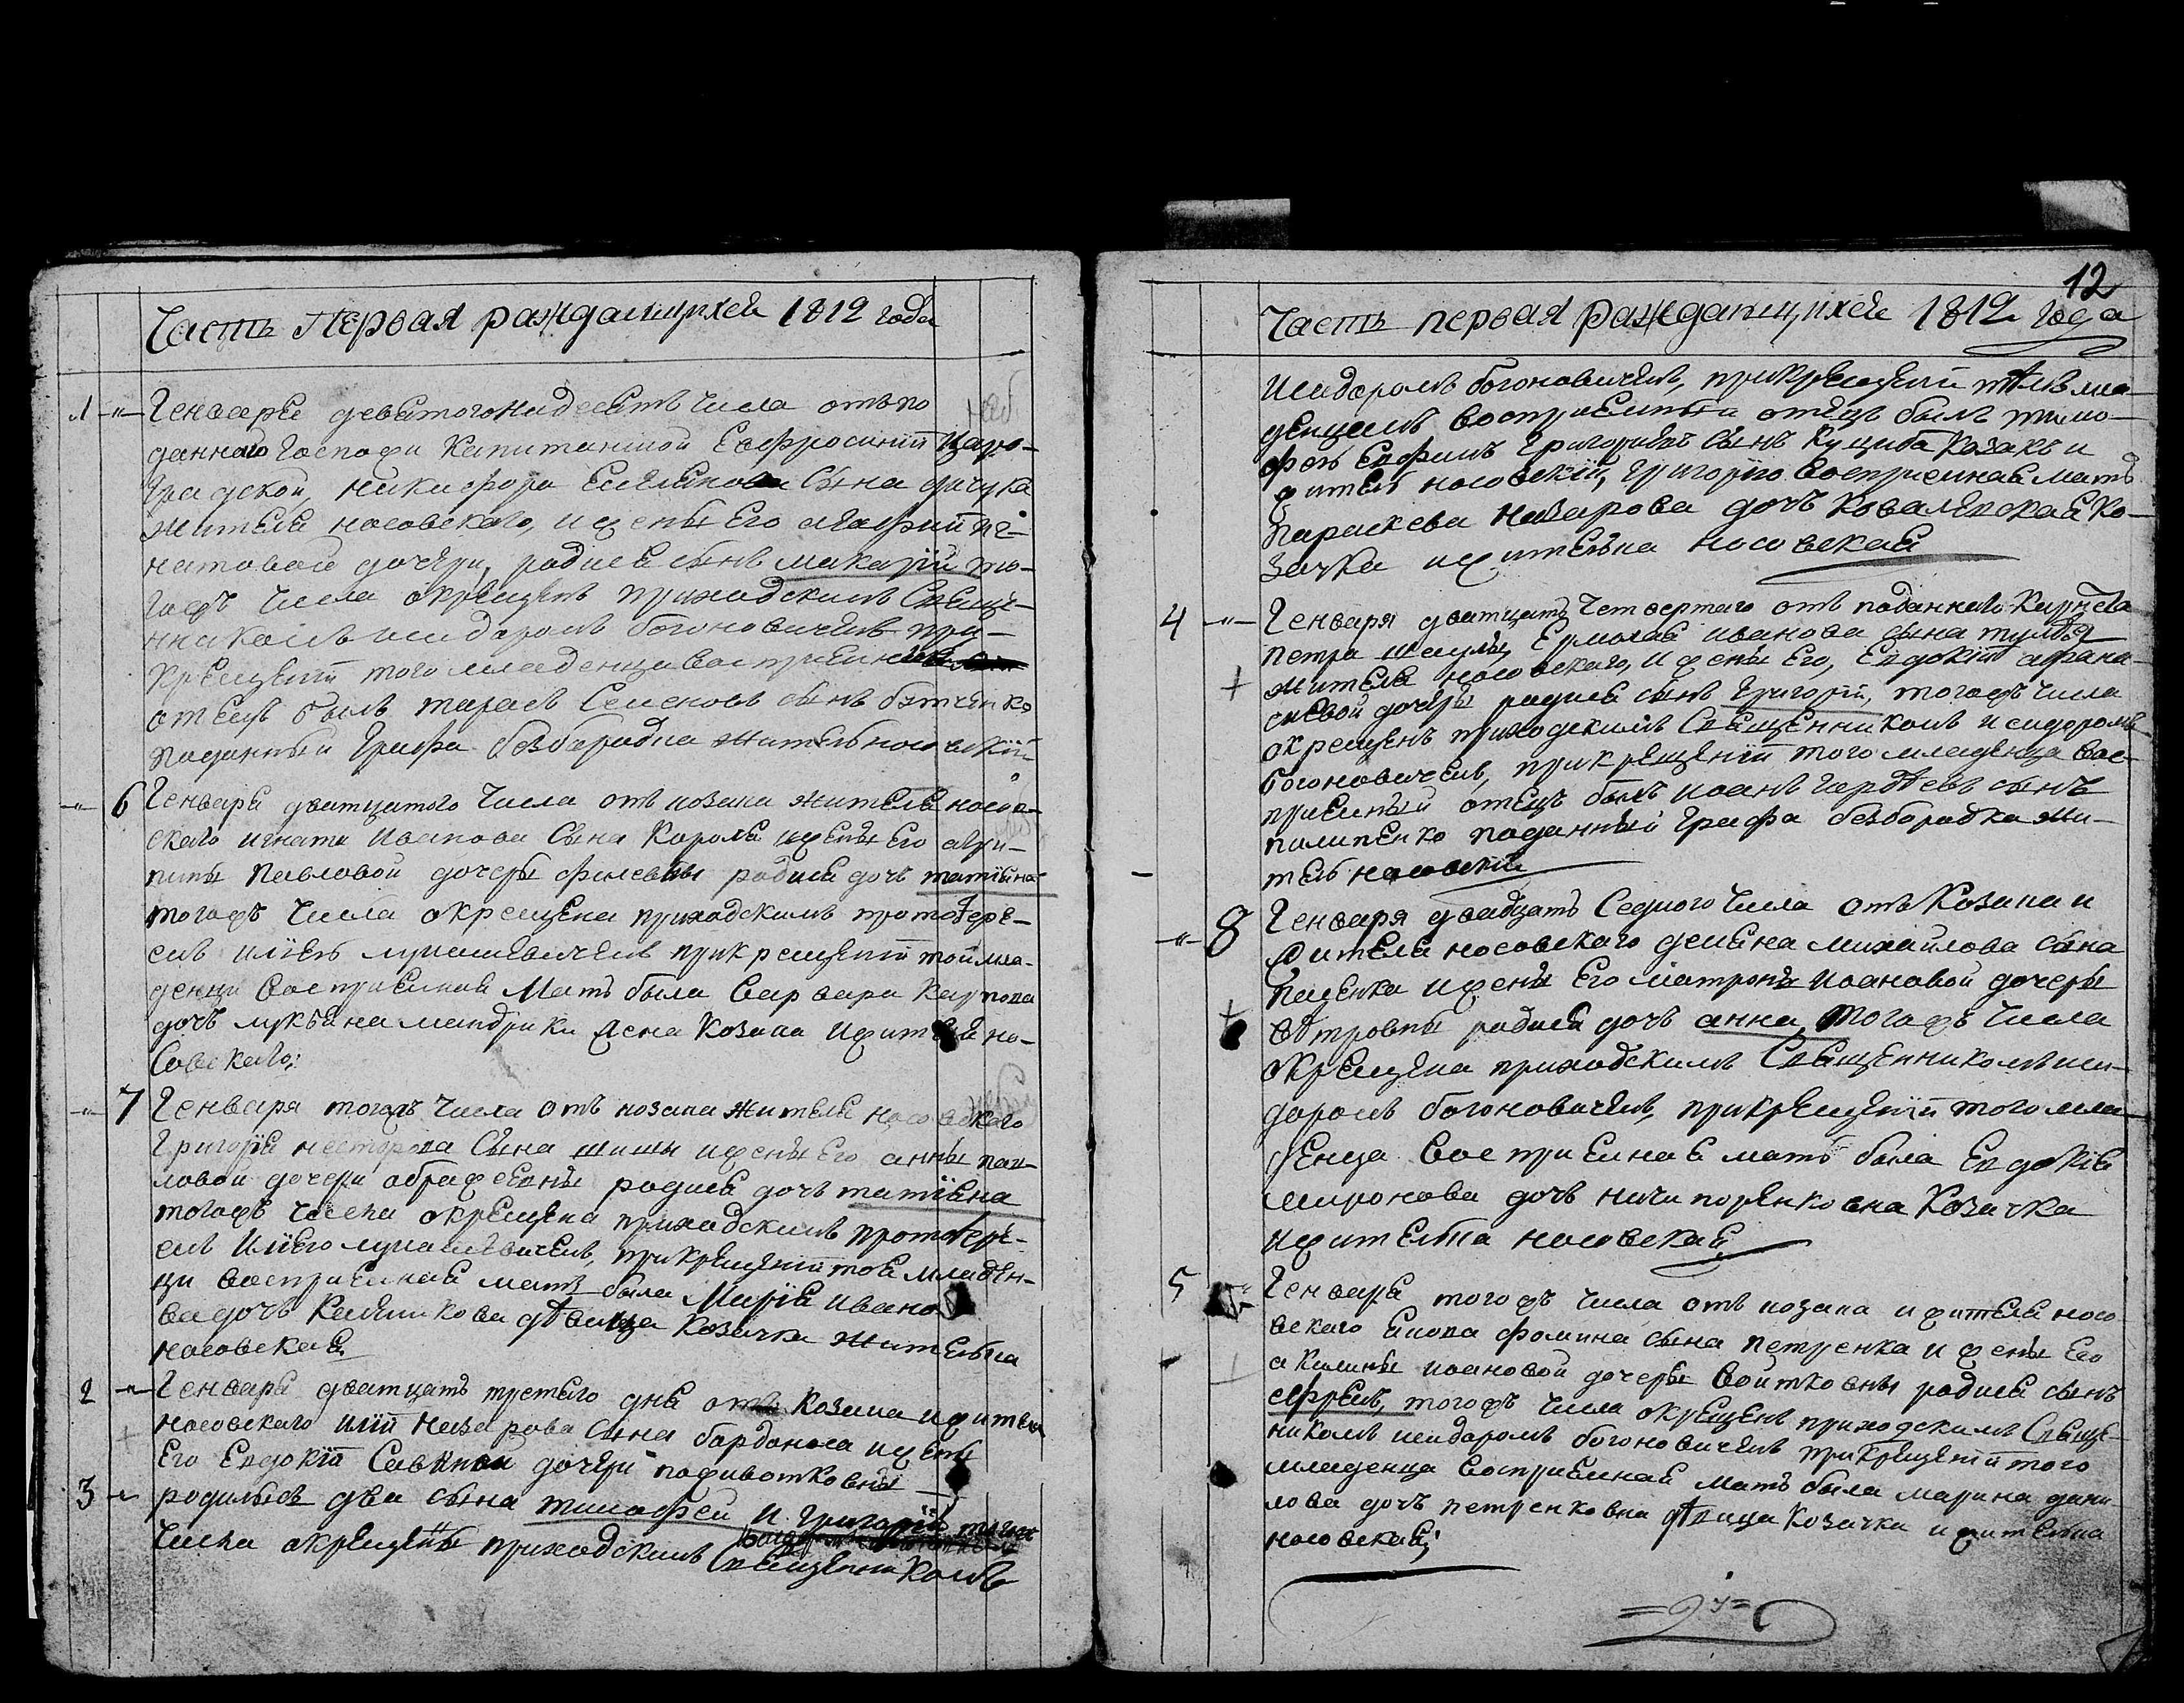 Часть Первая раждающихся 1812 года
1 -"- Генваря девятогонадесять числа отъ по
данного Госпожи Капитаншой Евфросиніи Царо-
Градской, никифора Сина дячука
жителя носовского, и жены Его агафіи иг-
натовой дочери, родися сынъ макарій то-
гожъ числа окрещенъ приходскимъ Свяще-
нникомъ исидоромъ богоновичемъ при-
крещеніи того младенца восприемный
отецъ былъ тарасъ Семеновъ сынъ
поданный Графа безбородка житель носовскій
-"- 6 Генваря дватцатого числа отъ козака жителя носов-
ского игната Иванова Сына Короля ижены Его агри-
пины Павловой дочеры родися дочъ татіяна
тогожъ числа окрещена приходскимъ протоіере-
емъ иліею лукашевичемъ прикрещеніи той мла-
денци восприемная Мать была варвара Карпова
дочъ лукъяна мандрики жена Козака ижителя но-
совского;
-"- 7 Генваря тогожъ числа отъ козака жителя носовского
Григорія несторова Сына шишы ижены Его анны пав-
ловой дочери родися дочъ татіяна
тогожъ числа окрещена приходскимъ протоіере-
емъ Иліею лукашевичемъ, прикрещеніи тоя младен-
ци восприемная мать была Марія ивано
ва дочъ Калѣникова дѣвица козачка жителька
носовская.
2 -"- Генваря дватцать третего дня отъ Козака ижителя
носовского иліи Назарова Сына бардоноса ижены
Его Евдокіи Савиной дочери
3 -"- родилысь два сына тимофей и Григорій тогожъ
числа окрещены приходскимъ Священникомъ
12
Часть первая раждающихся 1812 Года
Исидоромъ богоновичемъ, прикрещеніи тѣмъ мла-
денцемъ восприемный отецъ былъ тимо-
фею Ефимъ Григоріевъ Сынъ Куциба козакъ и
житель носовскій, Григорію восприемная мать
параскева Назарова дочъ Ковалевская Ко-
зачка ижителька носовская
4 -"- Генваря дватцать четвертаго отъ поданного Карнета
петра Ермолая иванова сына
жителя носовского, и жены Его, Евдокіи афана-
сиевой дочеры родися сынъ Григорій, тогожъ числа
окрещенъ приходскимъ Священникомъ исидоромъ
богоновичемъ, прикрещеніи того младенца вос-
приемный отецъ былъ иоанъ сынъ
пилипенко поданный Графа безбородка жи-
тель носовскій
-"- 8 Генваря двадцать Седмого числа отъ Козака и
жителя носовского демяна михайлова сына
ижены Его матроны иоановой дочеры
родися дочъ анна, тогожъ числа
окрещена приходскимъ Священникомъ иси-
доромъ богоновичемъ, прикрещеніи того мла-
денца восприемная мать была Евдокія
миронова дочъ ничипоренковна козачка
ижителька носовская
5 Генваря того жъ числа отъ козака и жителя носо
вского Якова фомина сына петренка и жены Его
акилины иоановой дочеры войтковны родися сынъ
ефремъ, тогожъ числа окрещенъ приходскимъ Священ-
никомъ исидоромъ богоновичемъ прикрещеніи того
младенца восприемная мать была марина дани-
лова дочъ петренковна дѣвица козачка и жителька
носовская;